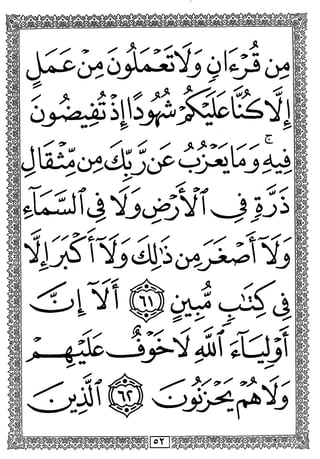 مِن قُرْءَانٍ وَلَا تَعْمَلُونَ مِنْ عَمَلٍ
إِلَّا كُنَّا عَلَيْكُمْ شُهُودًا إِذْ تُفِيضُونَ
فِيهِ ۚ وَمَا يَعْزُبُ عَن رَّبِّكَ مِن مِّثْقَالِ
ذَرَّةٍ فِي ٱلْأَرْضِ وَلَا فِي ٱلسَّمَآءِ
وَلَآ أَصْغَرَ مِن ذَٰلِكَ وَلَآ أَكْبَرَ إِلَّا
فِي كِتَٰبٍ مُّبِينٍ ٦١ أَلَآ إِنَّ
أَوْلِيَآءَ ٱللَّهِ لَا خَوْفٌ عَلَيْهِمْ
وَلَا هُمْ يَحْزَنُونَ ٦٢ ٱلَّذِينَ
٥٢